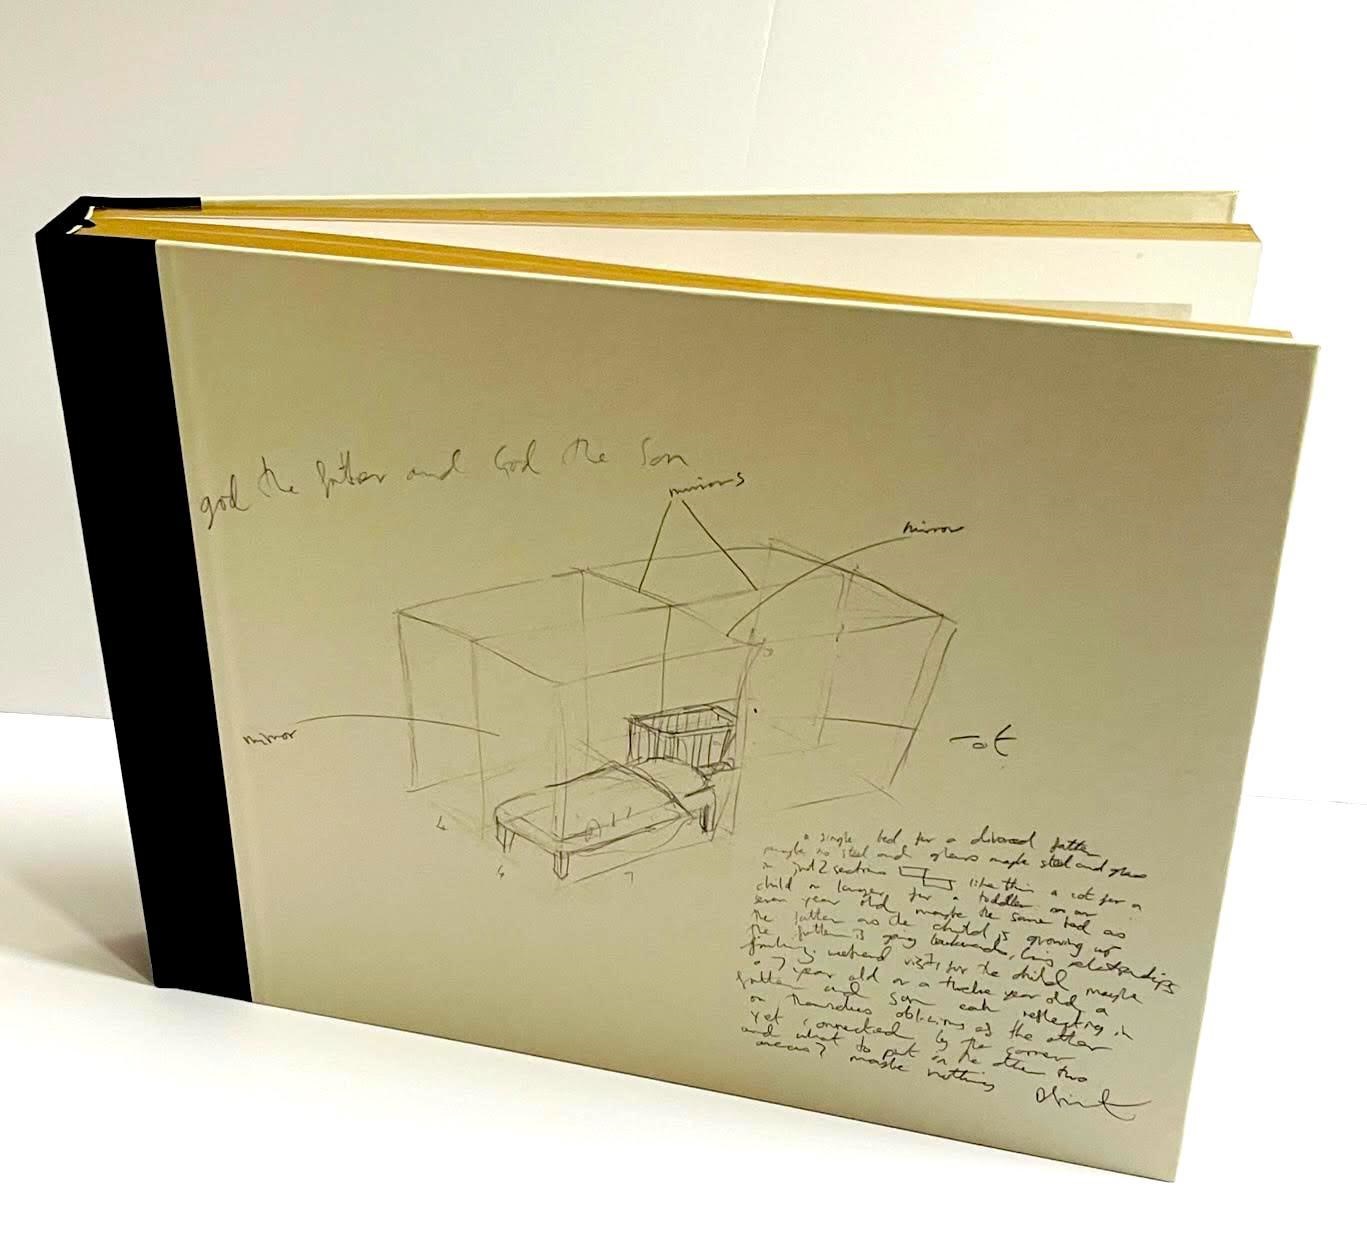 god the father and God the Son
mirrors
mirror
mirror
cot
4
6
7
a single bed for a divorced father
maybe no steel and glass maybe steel and glass
in just 2 sections like this a cot for a
child or larger for a toddler or an
seven year old, maybe the same bed as
the father as the child is growing up
the father is going backwards, his relationships
finishing, weekend visits for the child maybe
a 7 year old or a twelve year old, a
father and son each reflecting in
on themselves oblivious of the other
yet connected by the corner
and what to put in the other two
areas? maybe nothing
D Hirst